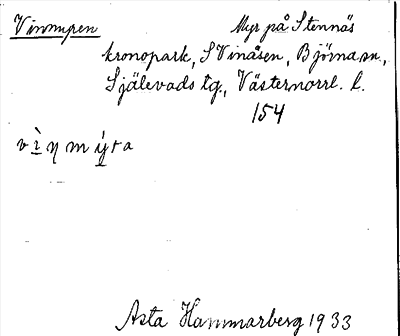 Vinmyren Myr på Stennäs
kronopark, S Vinåsen, Björna sn.,
Själevads tg., Västernorrl. l.
154
v ì ŋ m ý r a
Asta Hammarberg 1933